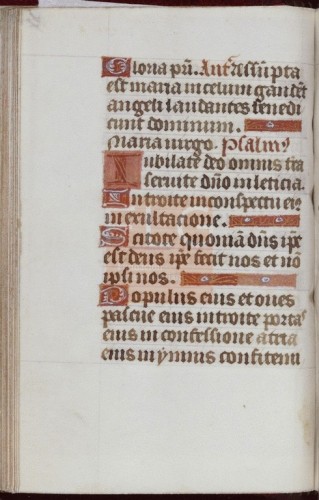 Gloria pri. Ant. Assumpta
est maria in celum gaudet
angeli laudantes benedi
cunt dominum.
Maria virgo. Psalmus
Iubilate deo omnis tra
servite dno in leticia.
Introite in conspectu ei9
in exultacione.
Scitote quoniam dns ipe
est deus ipe fecit nos et no
ipsi nos.
Populus eius et oves
pascue eius introite portas
eius in confessione atria
eius in ymnis confitemi